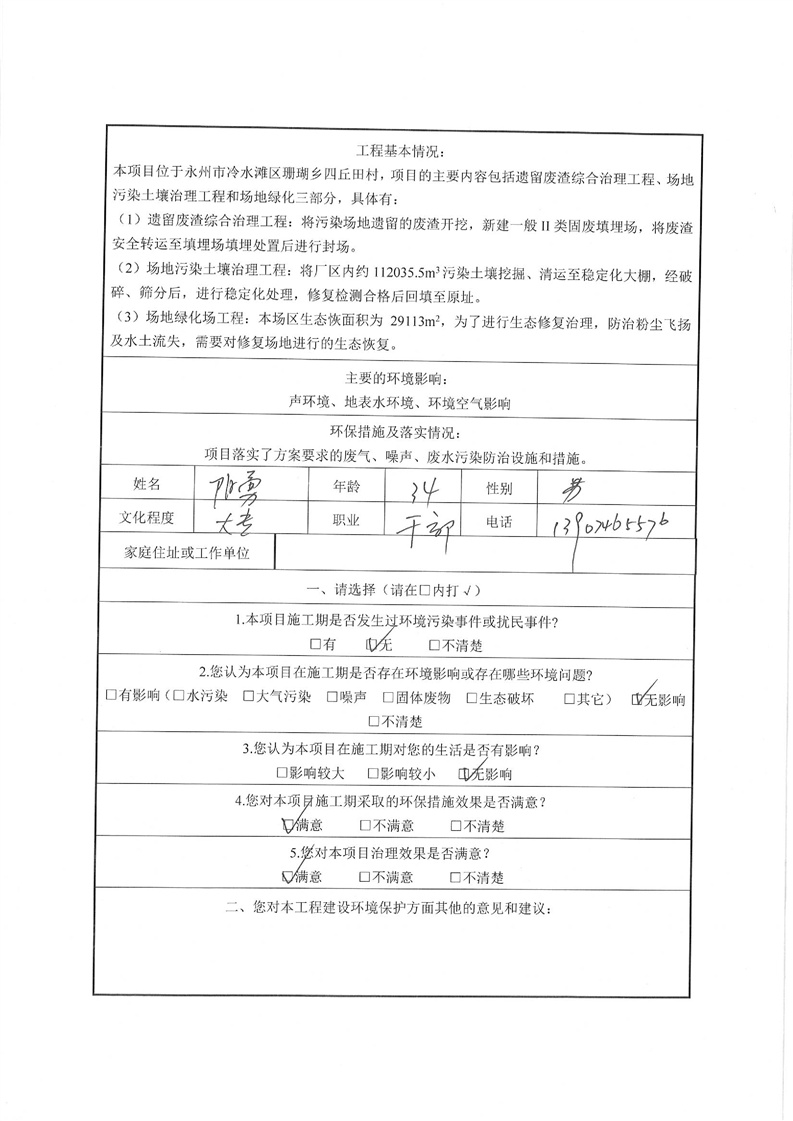 工程基本情况：
本项目位于永州市冷水滩区珊瑚乡四丘田村，项目的主要内容包括遗留废渣综合治理工程、场地
污染土壤治理工程和场地绿化三部分，具体有：
（1）遗留废渣综合治理工程：将污染场地遗留的废渣开挖，新建一般 II 类固废填埋场，将废渣
安全转运至填埋场填埋处置后进行封场。
（2）场地污染土壤治理工程：将厂区内约 112035.5m³污染土壤挖掘、清运至稳定化大棚，经破
碎、筛分后，进行稳定化处理，修复检测合格后回填至原址。
（3）场地绿化场工程：本场区生态恢面积为 29113m²，为了进行生态修复治理，防治粉尘飞扬
及水土流失，需要对修复场地进行的生态恢复。
主要的环境影响：
声环境、地表水环境、环境空气影响
环保措施及落实情况：
项目落实了方案要求的废气、噪声、废水污染防治设施和措施。
姓名 勇 年龄 34 性别 男
文化程度 大专 职业 干部 电话 13907465576
家庭住址或工作单位
一、请选择（请在□内打√）
1.本项目施工期是否发生过环境污染事件或扰民事件?
□有 ☑无 □不清楚
2.您认为本项目在施工期是否存在环境影响或存在哪些环境问题?
□有影响（□水污染 □大气污染 □噪声 □固体废物 □生态破坏 □其它） ☑无影响
□不清楚
3.您认为本项目在施工期对您的生活是否有影响？
□影响较大 □影响较小 ☑无影响
4.您对本项目施工期采取的环保措施效果是否满意？
☑满意 □不满意 □不清楚
5.您对本项目治理效果是否满意？
☑满意 □不满意 □不清楚
二、您对本工程建设环境保护方面其他的意见和建议：